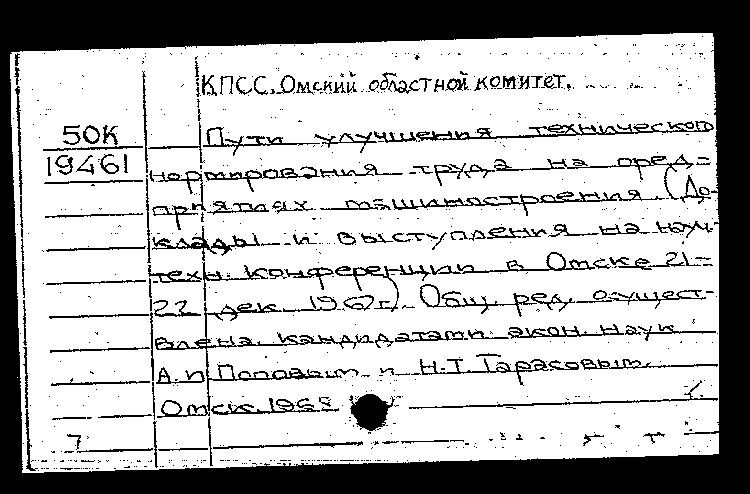 КПСС. Омский областной комитет.
50К Пути улучшения технического
19461 нормирования труда на пред=
приятиях машиностроения. (До-
клады и выступления на науч.
техн. конференции в Омске 21=
22 дек. 1967г.) Общ. ред. осущест-
влена кандидатами экон. наук
А.П Поповым и Н.Т. Тарасовым.
Омск. 1968
7